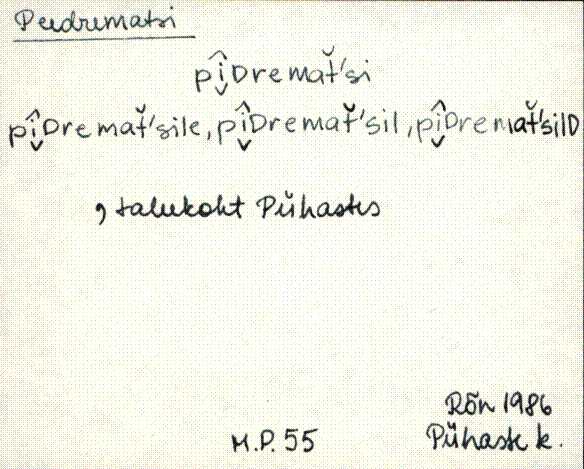 Peedrumatsi
pî̭Dremat̆'si
pî̭Dremat̆'sile, pî̭Dremat̆'sil, pî̭Dremat̆'silD
, talukoht Pühastes
Rõn 1986
M.P. 55 Pühaste k.